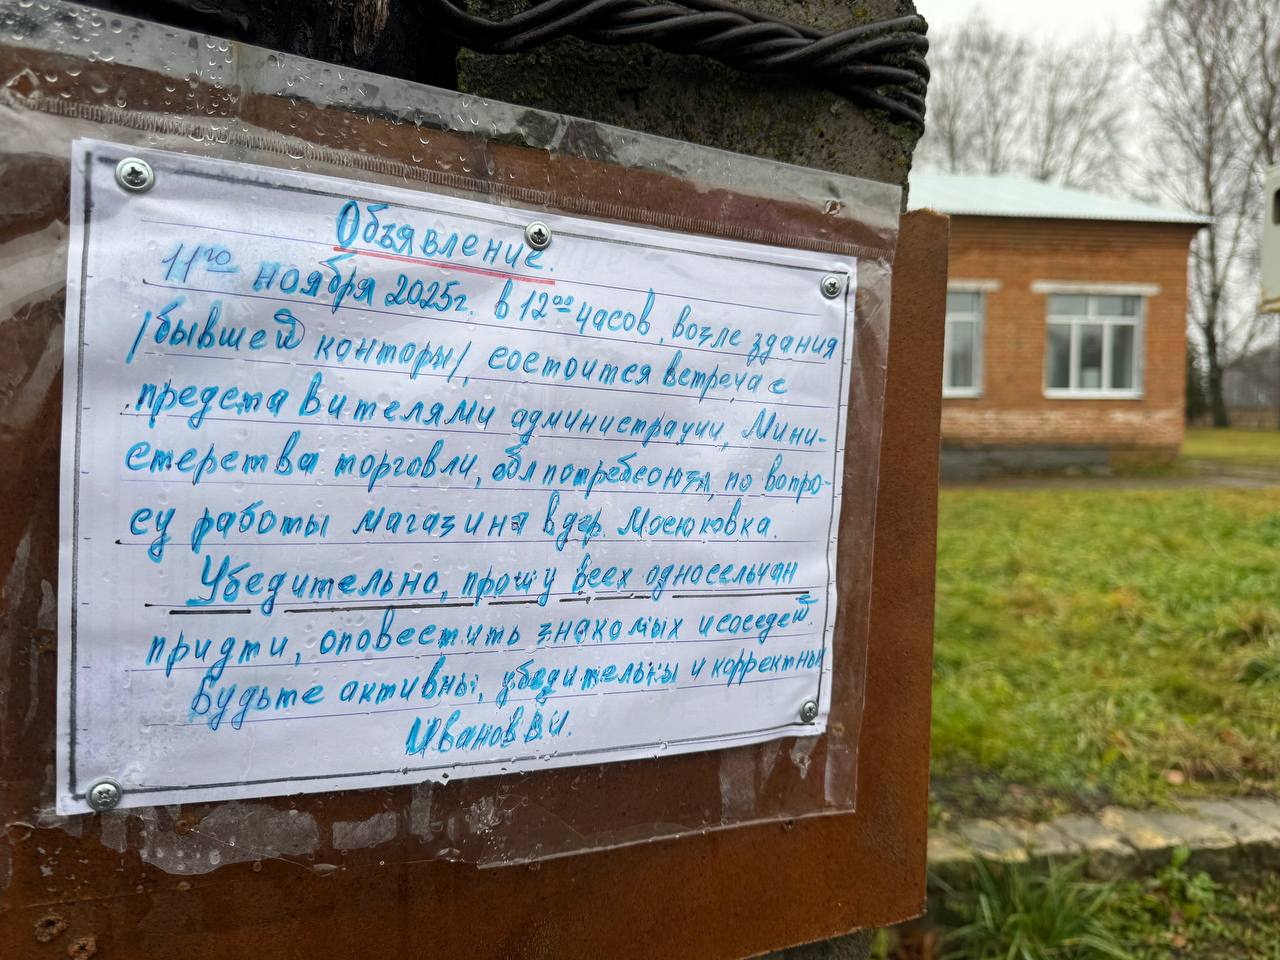 Объявление.
11го ноября 2025г. в 12оо часов, возле здания
/бывшей конторы/, состоится встреча с
представителями администрации, Мини-
стерства торговли, облпотребсоюза, по вопро-
су работы магазина в дер. Мосюковка.
Убедительно, прошу всех односельчан
придти, оповестить знакомых и соседей.
Будьте активны, убедительны и корректны
Иванов В.И.